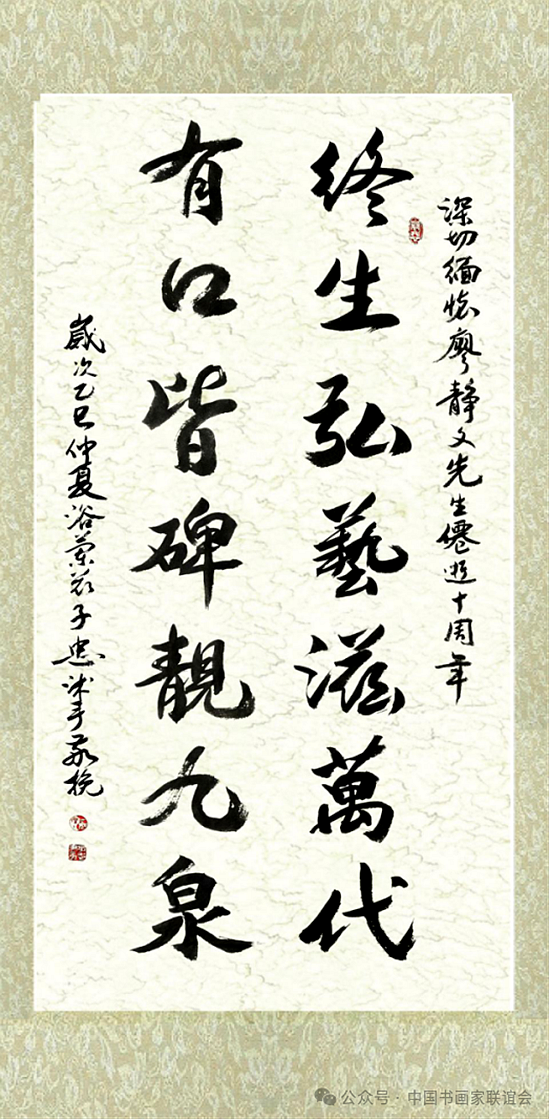 深切缅怀廖静文先生僊逝十周年
终生弘藝滋萬代
有口皆碑靚九泉
歲次乙巳仲夏浴蘭
子忠沐手敬挽
公众号 · 中国书画家联谊会